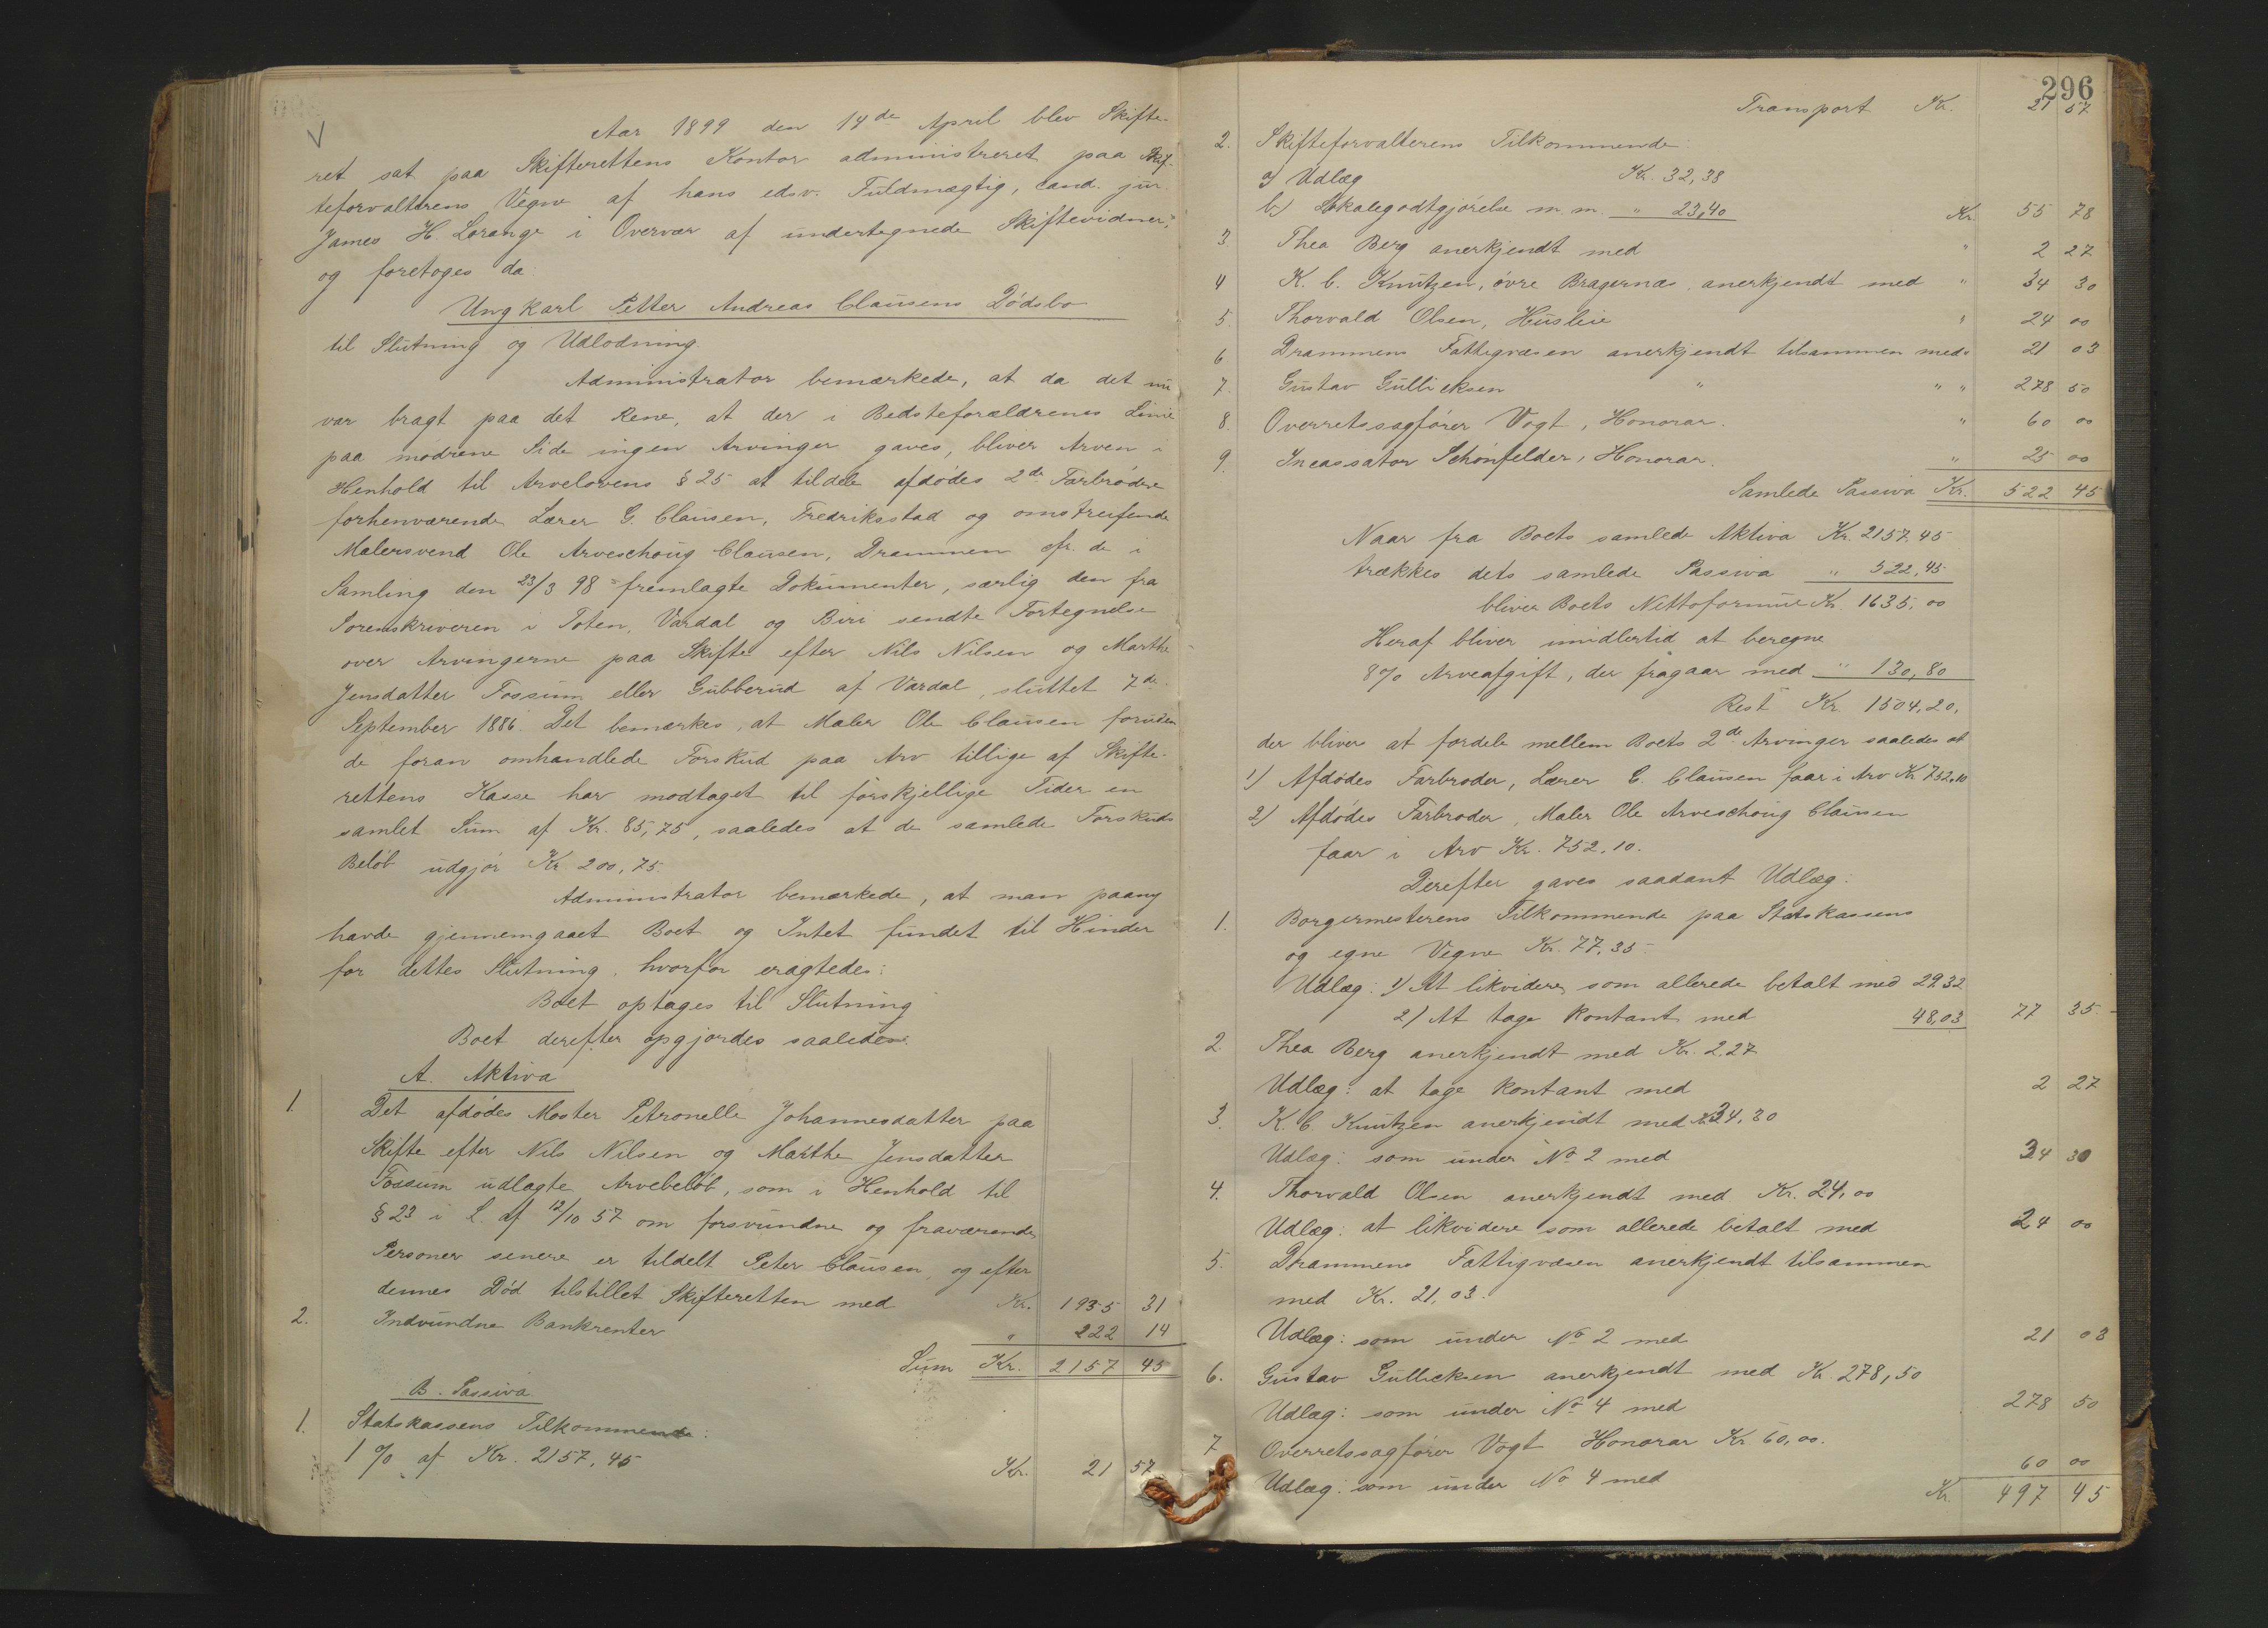 Aar 1899 den 14de April blev Skifte-
ret sat paa Skifterettens Kontor administreret paa Skif-
teforvalterens Vegne af hans edsv. Fuldmægtig, cand. jur.
James H. Lorange i Overvær af undertegnede Skiftevidner,
og foretoges da:
Ungkarl Petter Andreas Clausens Dødsbo
til Slutning og Udlodning.
Administrator bemærkede, at da det nu
var bragt paa det Rene, at der i Bedsteforældrenes Linie
paa mødrene Side ingen Arvinger gaves, bliver Arven i
Henhold til Arvelovens § 25 at tildele afdødes 2de Farbrødre
forhenværende Lærer G. Clausen, Fredriksstad og omstreifende
Malersvend Ole Arveschoug Clausen, Drammen cfr. de i
Samling den 23/3 98 fremlagte Dokumenter, særlig den fra
Sorenskriveren i Toten, Vardal og Biri sendte Fortegnelse
over Arvingerne paa Skifte efter Nils Nilsen og Marthe
Jensdatter Fossum eller Gubberud af Vardal, sluttet 7de
September 1886. Det bemærkes, at Maler Ole Clausen foruden
de foran omhandlede Forskud paa Arv tillige af Skifte-
rettens Kasse har modtaget til forskjellige Tider en
samlet Sum af Kr. 85,75, saaledes at de samlede Forskuds
Beløb udgjør Kr. 200,75.
Administrator bemærkede, at man paany
havde gjennemgaaet Boet og Intet fundet til Hinder
for dettes Slutning, hvorfor eragtedes:
Boet optages til Slutning
Boet derefter opgjordes saaledes:
A. Aktiva
1. Det afdødes Moster Petronelle Johannesdatter paa
Skifte efter Nils Nilsen og Marthe Jensdatter
Fossum udlagte Arvebeløb, som i Henhold til
§ 23 i L. af 12/10 57 om forsvundne og fraværende
Personer senere er tildelt Peter Clausen, og efter
dennes Død tilstillet Skifteretten med Kr. 1935 31
2. Indvundne Bankrenter " 222 14
Sum Kr. 2157 45
B. Passiva.
1. Statskassens Tilkommende:
1 % af Kr. 2157,45 Kr. 21 57
296
Transport Kr. 21 57
2. Skifteforvalterens Tilkommende
a) Udlæg Kr. 32,38
b) Skalegodtgjørelse m.m. " 23,40 Kr. 55 78
3. Thea Berg anerkjendt med " 2 27
4 K. C. Knutzen, øvre Bragernæs anerkjendt med " 34 30
5. Thorvald Olsen, Husleie " 24 00
6 Drammens Fattigvæsen anerkjendt tilsammen med " 21 03
7. Gustav Gulliksen " " " 278 50
8. Overretssagfører Vogt, Honorar. " 60 00
9. Incassator Schønfelder, Honorar. " 25 00
Samlede Passiva Kr. 522 45
Naar fra Boets samlede Aktiva Kr. 2157,45
trækkes dets samlede Passiva " 522,45
bliver Boets Nettoformue Kr. 1635,00
Heraf bliver imidlertid at beregne
8% Arveafgift, der fragaar med " 130,80
Rest Kr. 1504,20,
der bliver at fordele mellem Boets 2de Arvinger saaledes at
1) Afdødes Farbroder, Lærer G. Clausen faar i Arv Kr 752,10
2) Afdødes Farbroder, Maler Ole Arveschoug Clausen
faar i Arv Kr. 752,10.
Derefter gaves saadant Udlæg:
1. Borgermesterens Tilkommende paa Statskassens
og egne Vegne Kr. 77,35
Udlæg: 1) At likvidere som allerede betalt med 29,32
2) At tage kontant med 48,03 77 35
2 Thea Berg anerkjendt med Kr. 2,27
Udlæg: at tage kontant med 2 27
3. K. C. Knutzen anerkjendt med Kr. 34,30
Udlæg: som under No 2 med 34 30
4. Thorvald Olsen anerkjendt med Kr. 24,00
Udlæg: at likvidere som allerede betalt med 24 00
5. Drammens Fattigvæsen anerkjendt tilsammen
med Kr. 21,03.
Udlæg: som under No 2 med 21 03
6. Gustav Gulliksen anerkjendt med Kr. 278,50
Udlæg: som under No 4 med 278 50
7 Overretssagfører Vogt Honorar Kr 60,00.
Udlæg: som under No 4 med 60 00
Kr. 497 45